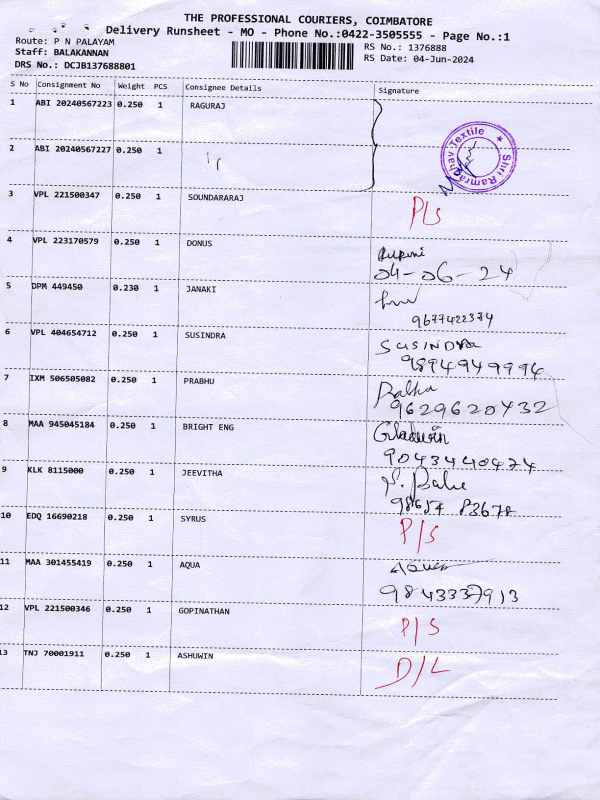 THE PROFESSIONAL COURIERS, COIMBATORE
Delivery Runsheet - MO - Phone No.:0422-3505555 - Page No.:1
Route: P N PALAYAM
Staff: BALAKANNAN
DRS No.: DCJB137688801
RS No.: 1376888
RS Date: 04-Jun-2024
S No Consignment No Weight PCS Consignee Details Signature
1 ABI 20240567223 0.250 1 RAGURAJ
Shri Ramraghav Textile
2 ABI 20240567227 0.250 1
3 VPL 221500347 0.250 1 SOUNDARARAJ P/S
4 VPL 223170579 0.250 1 DONUS
04-06-24
5 DPM 449450 0.230 1 JANAKI
9677422374
6 VPL 404654712 0.250 1 SUSINDRA SUSINDRA
9894949994
7 IXM 506505082 0.250 1 PRABHU
9629620432
8 MAA 945045184 0.250 1 BRIGHT ENG
9043440424
9 KLK 8115000 0.250 1 JEEVITHA
10 EDQ 16690218 0.250 1 SYRUS P/S
11 MAA 301455419 0.250 1 AQUA
9843337913
12 VPL 221500346 0.250 1 GOPINATHAN P/S
13 TNJ 70001911 0.250 1 ASHUWIN D/L